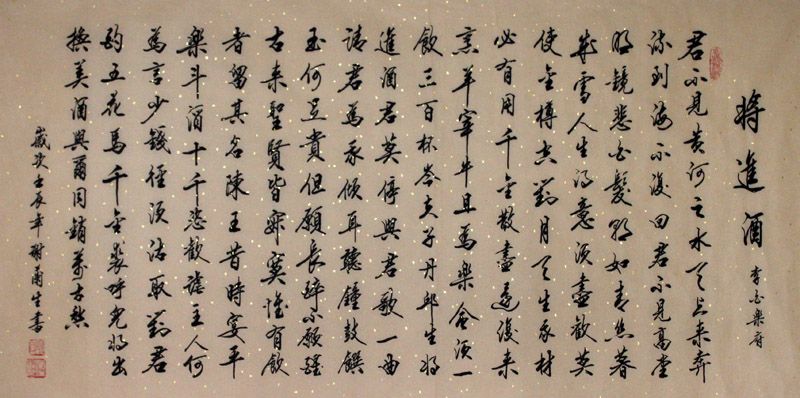 將進酒
李白樂府
君不見黃河之水天上來奔
流到海不復回君不見高堂
明鏡悲白髮朝如青絲暮
成雪人生得意須盡歡莫
使金樽空對月天生我材
必有用千金散盡還復來
烹羊宰牛且為樂會須一
飲三百杯岑夫子丹邱生將
進酒君莫停與君歌一曲
請君為我傾耳聽鐘鼓饌
玉何足貴但願長醉不願醒
古來聖賢皆寂寞惟有飲
者留其名陳王昔時宴平
樂斗酒十千恣歡謔主人何
為言少錢徑須沽取對君
酌五花馬千金裘呼兒將出
換美酒與爾同銷萬古愁
歲次壬辰年謝甫生書